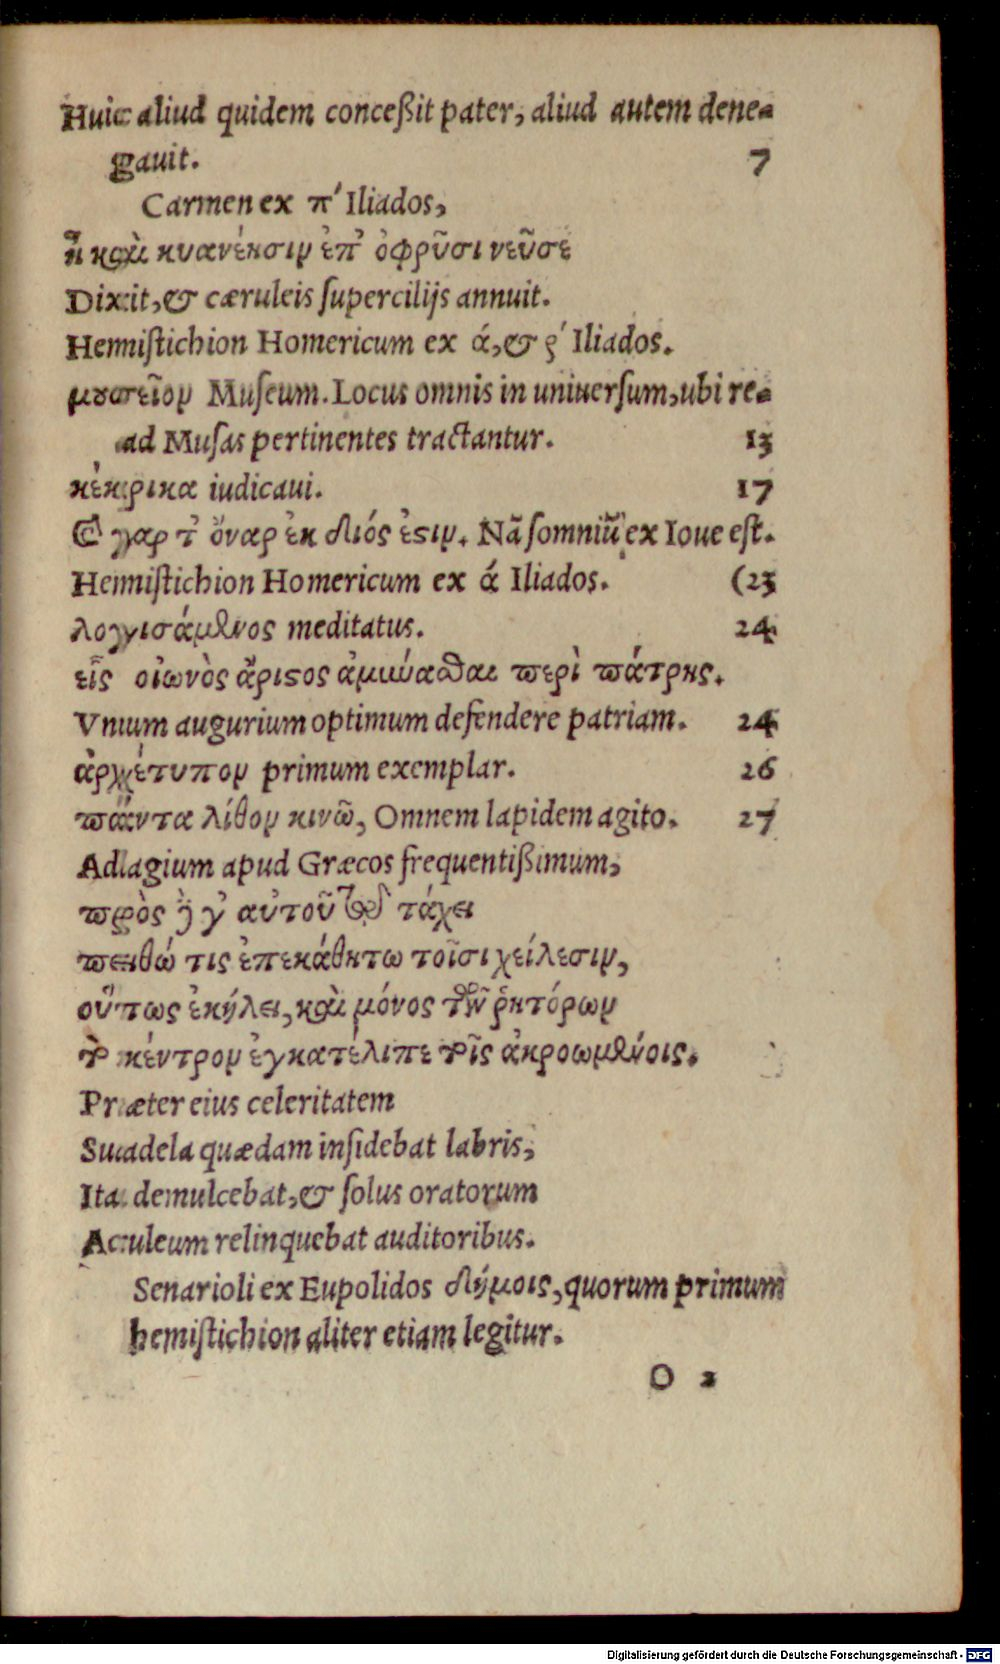 Huic aliud quidem conceßit pater, aliud autem dene-
gauit. 7
Carmen ex π´ Iliados,
ἦ καὶ κυανέησιν ἐπ᾽ ὀφρῦσι νεῦσε
Dixit, & cæruleis supercilijs annuit.
Hemistichion Homericum ex ά, & ρ´ Iliados.
μουσεῖον Museum. Locus omnis in uniuersum, ubi re-
ad Musas pertinentes tractantur. 13
κέκρικα iudicaui. 17
Καὶ γαρ τ᾽ ὄναρ ἐκ διός ἐστιν. Nã somniũ ex Ioue est.
Hemistichion Homericum ex ά Iliados. (23
λογισάμενος meditatus. 24
εἷς οἰωνὸς ἄριστος ἀμύναθαι περὶ πάτρης.
Vnum augurium optimum defendere patriam. 24
ἀρχέτυπον primum exemplar. 26
πάντα λίθον κινῶ, Omnem lapidem agito. 27
Adagium apud Græcos frequentißimum,
πρὸς δὲ γ᾽ αὐτοῦ τῷ τάχει
πειθώ τις ἐπεκάθητω τοῖσι χείλεσιν,
οὕτως ἐκήλει, καὶ μόνος τῶν ῥητόρων
τὸ κέντρον ἐγκατέλιπε τοῖς ἀκροωμένοις.
Præter eius celeritatem
Suadela quædam insidebat labris,
Ita demulcebat, & solus oratorum
Aculeum relinquebat auditoribus.
Senarioli ex Eupolidos δήμοις, quorum primum
hemistichion aliter etiam legitur.
O 2
Digitalisierung gefördert durch die Deutsche Forschungsgemeinschaft - DFG